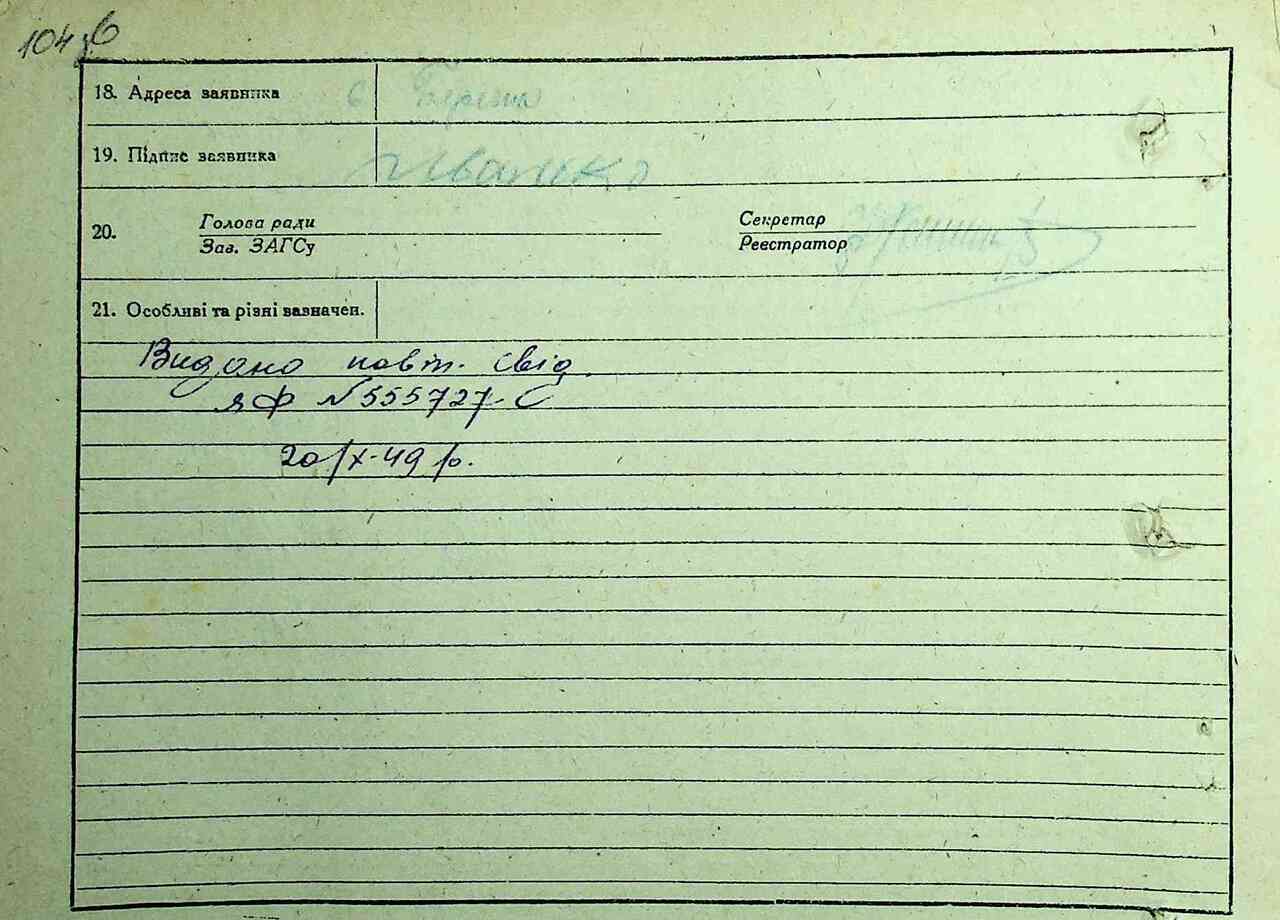 104 зв
18. Адреса заявника
19. Підпис заявника Ивашко
20. Голова ради Секретар
Зав. ЗАГСу Реестратор
21. Особливі та різні вазначен.
Видано повт. свід.
ЯФ №555727-С
20/X-49 р.